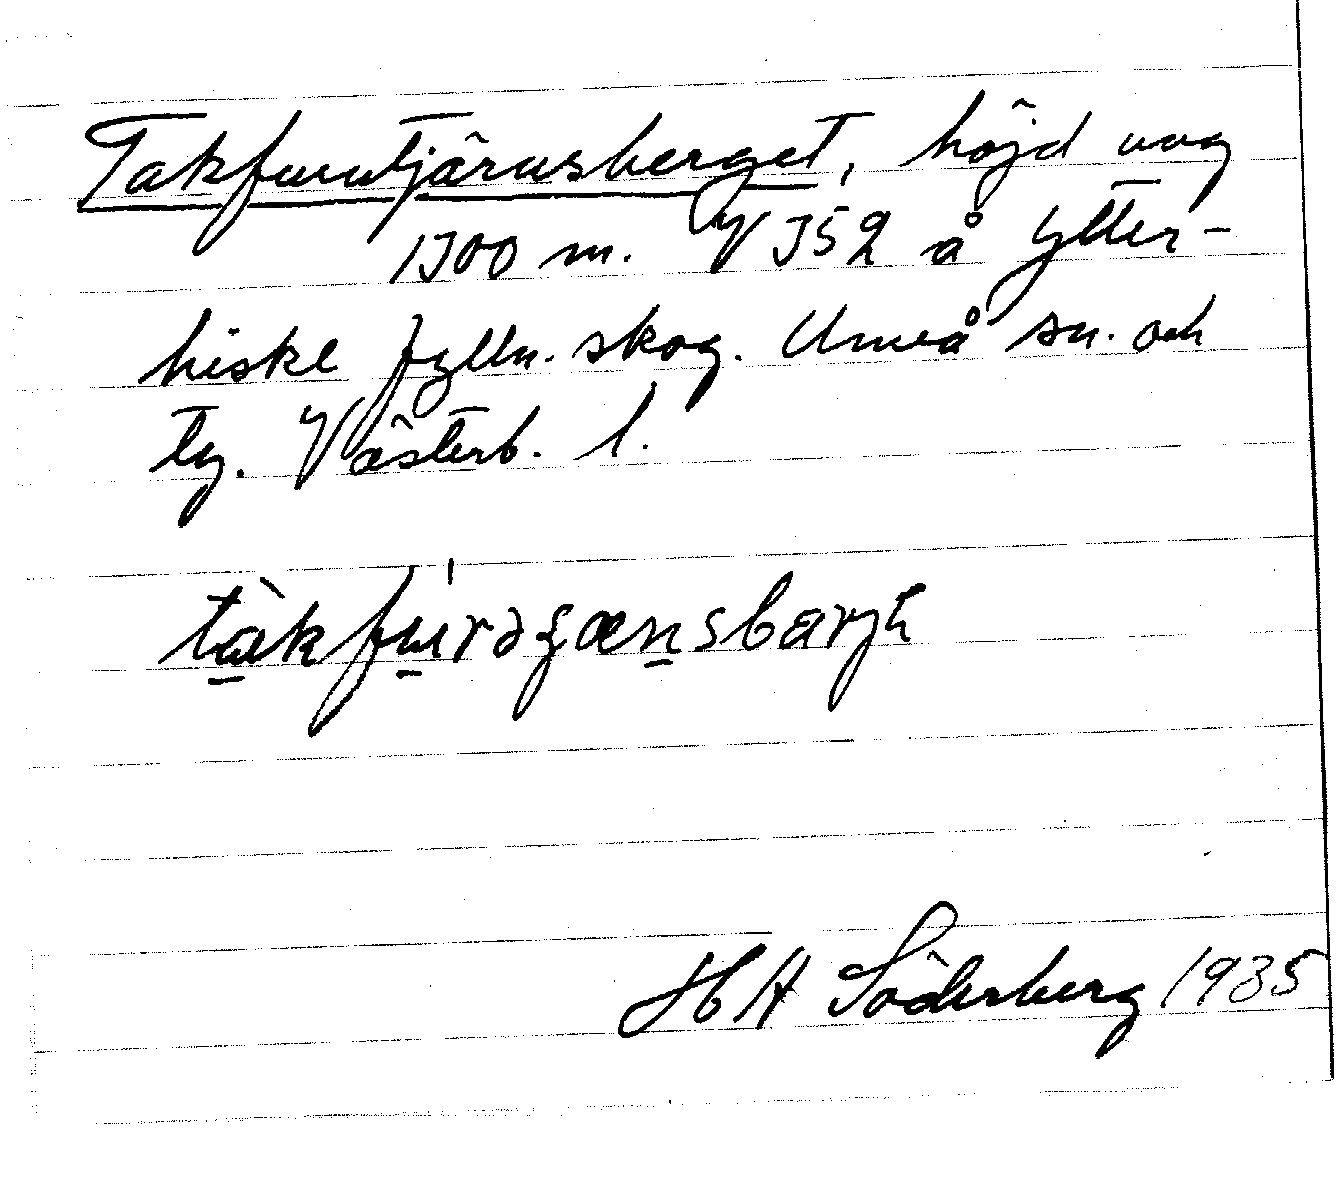 Takfurutjärnsberget, höjd omg
1300 m. V 352 å Ytter-
hiske fylln. skog. Umeå sn. och
tg. Västerb. l.
tàkfu̱rəʂæṉsbærjh
H A Söderberg 1935